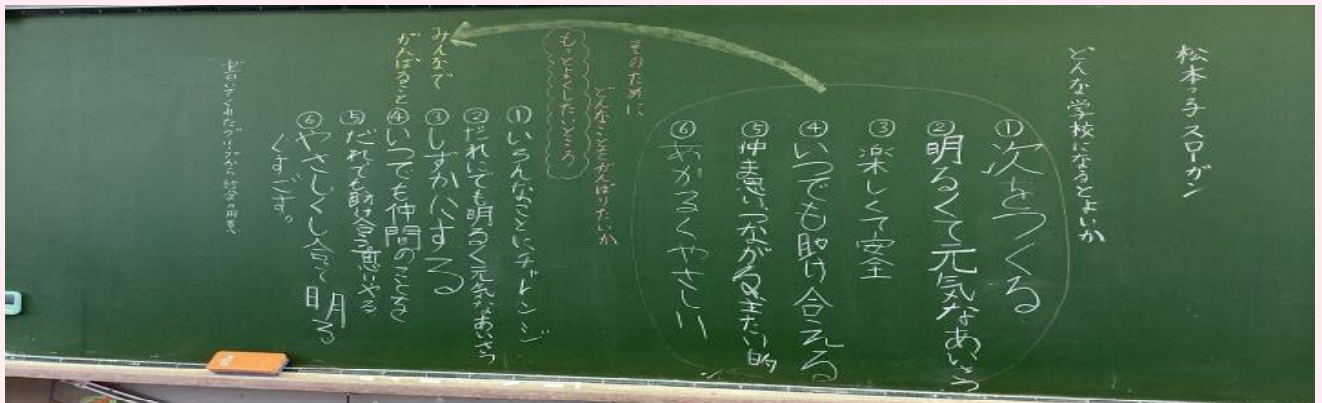 松本っ子 スローガン
どんな学校になるとよいか
① 次をつくる
② 明るくて元気なあいさつ
③ 楽しくて安全
④ いつでも助け合える
⑤ 仲間思い、つながる
⑥ あかるくやさしい
そのために、
どんなことをがんばりたいか
もっとよくしたいところ
みんなで
がんばること
① いろんなことにチャレンジ
② だれにでも明るく元気なあいさつ
③ しずかにする
④ いつでも仲間のことを
⑤ だれでも助け合う思いやる
⑥ やさしくし合って明る
くすごす。
書いてくれたグループから給食の用意